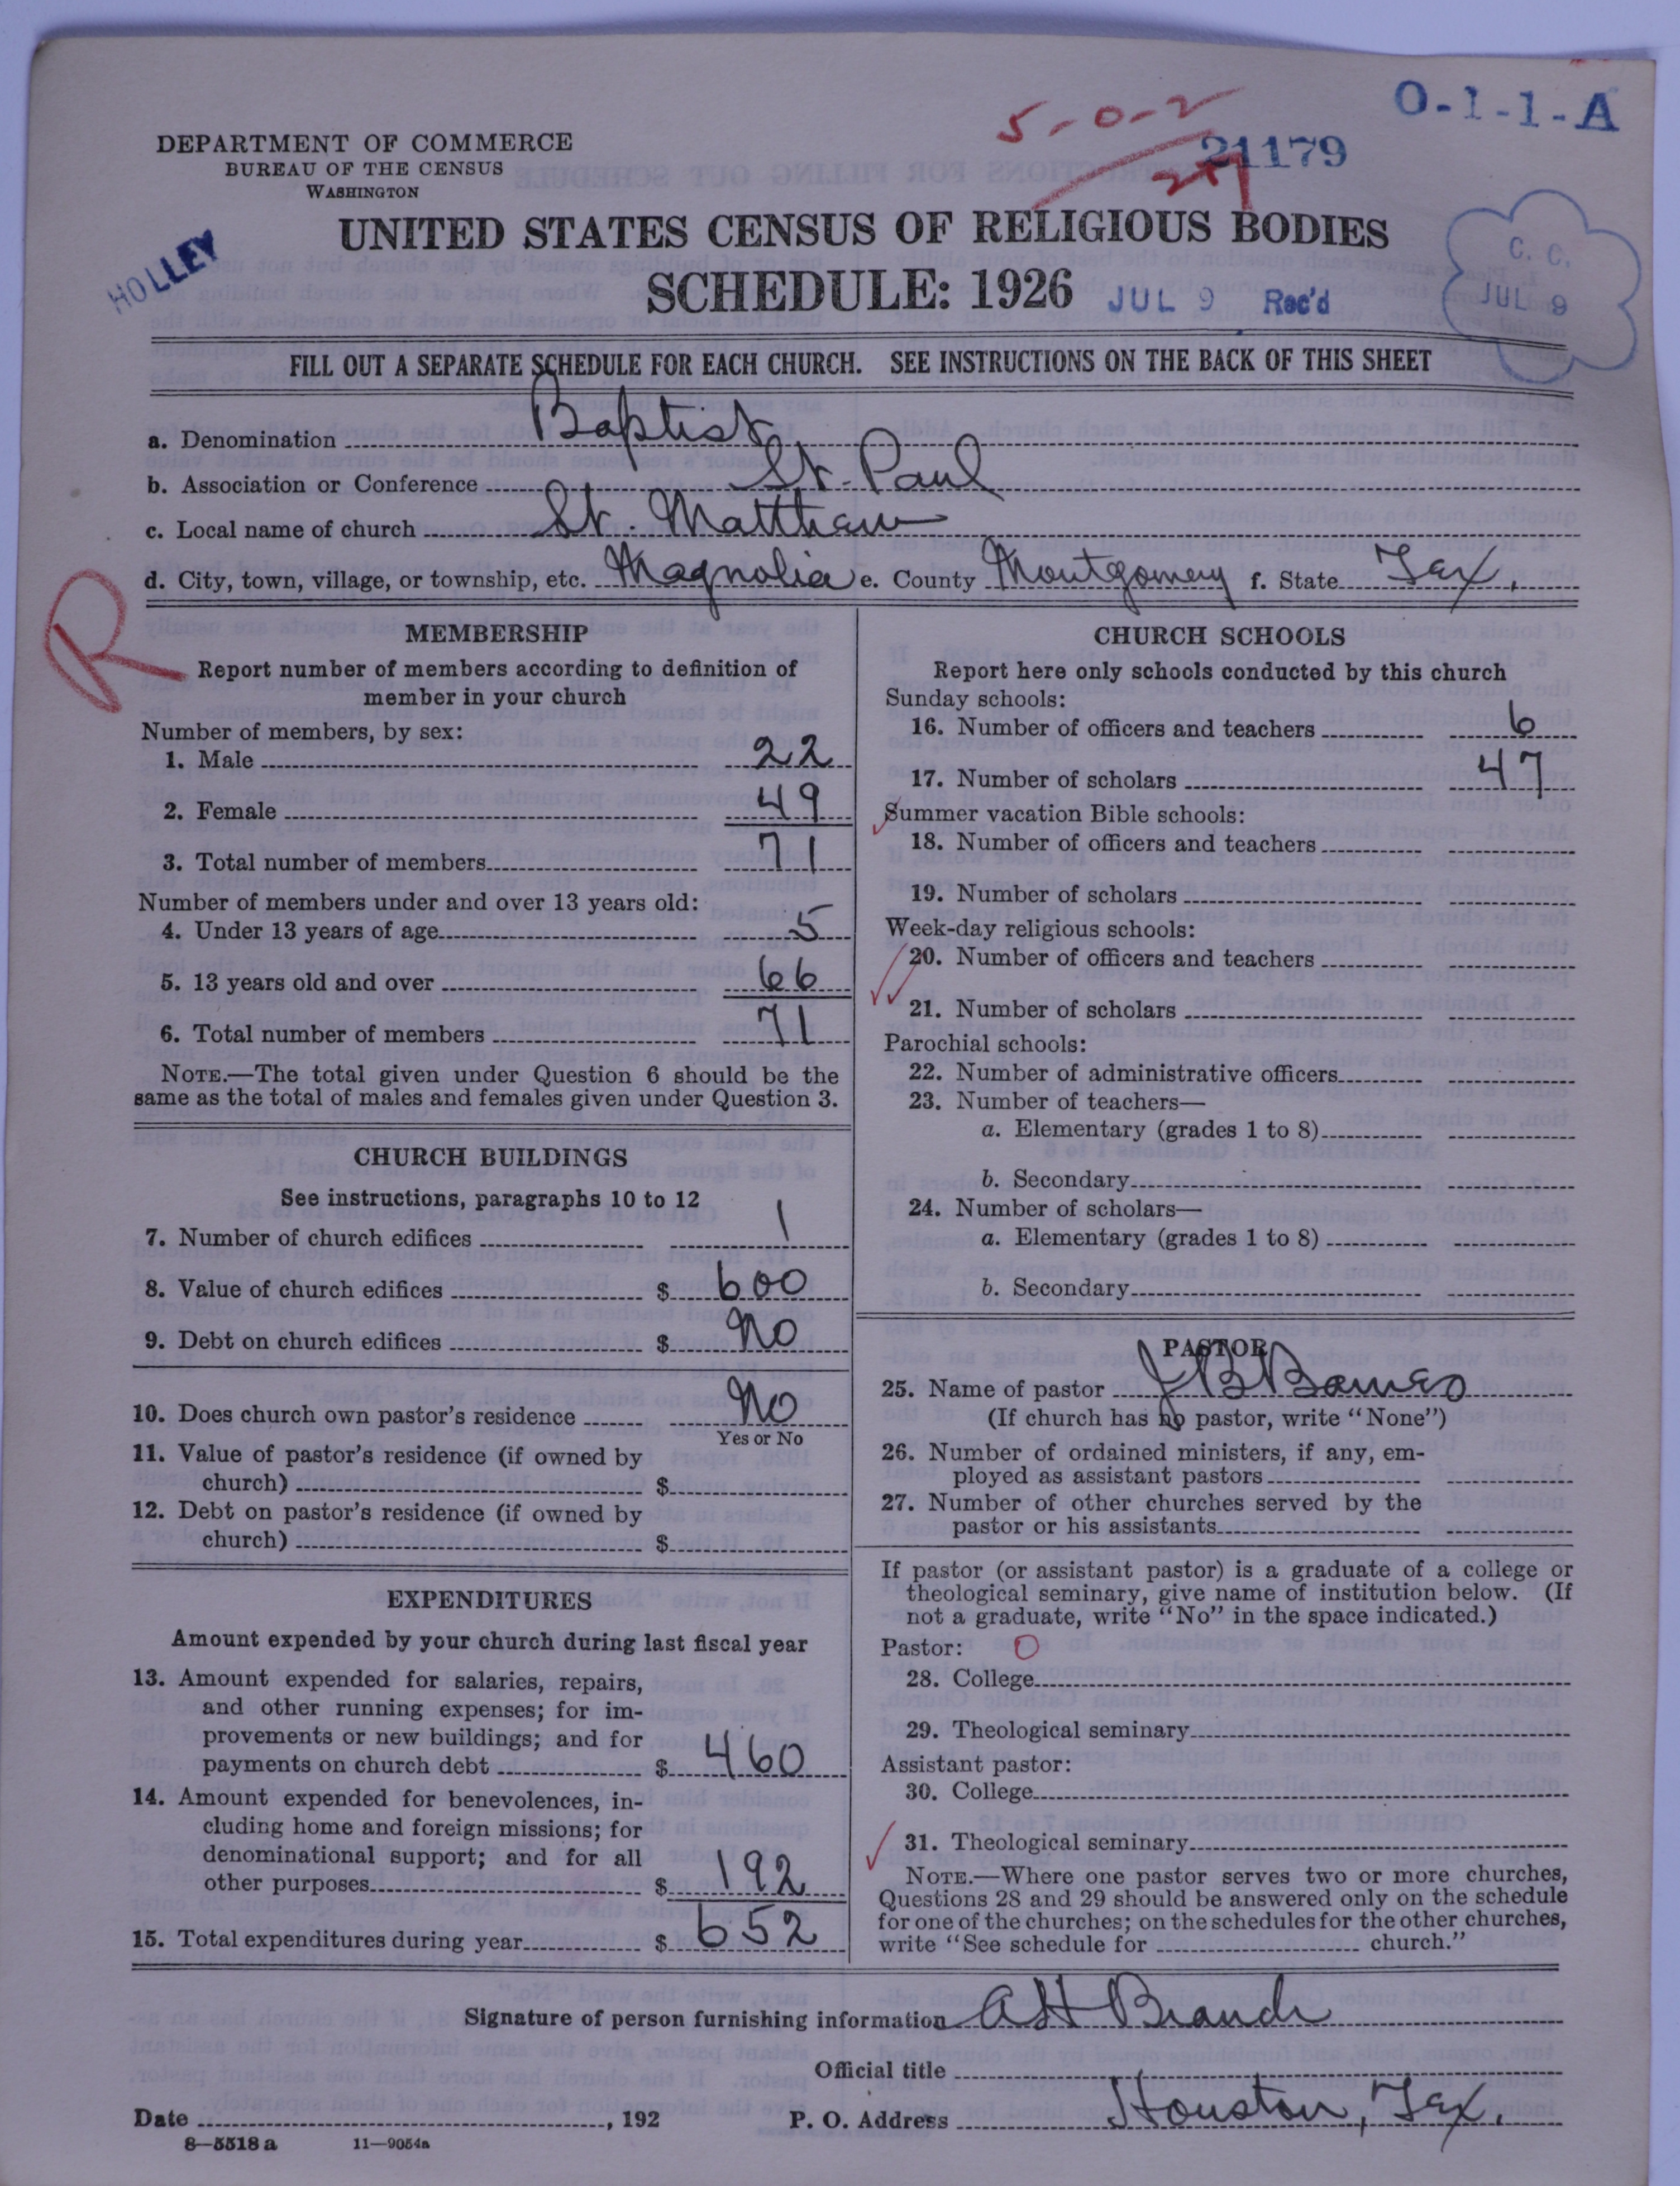 O-1-1-A
5-0-2
21179
DEPARTMENT OF COMMERCE
BUREAU OF THE CENSUS
WASHINGTON
HOLLEY
UNITED STATES CENSUS OF RELIGIOUS BODIES
SCHEDULE: 1926
JUL 9 Rec'd
C. C.
JUL 9
FILL OUT A SEPARATE SCHEDULE FOR EACH CHURCH. SEE INSTRUCTIONS ON THE BACK OF THIS SHEET
a. Denomination Baptist
b. Association or Conference St. Paul
c. Local name of church St. Matthew
d. City, town, village, or township, etc. Magnolia e. County Montgomery f. State Tex.
R
MEMBERSHIP
Report number of members according to definition of
member in your church
Number of members, by sex:
1. Male 22
2. Female 49
3. Total number of members 71
Number of members under and over 13 years old:
4. Under 13 years of age 5
5. 13 years old and over 66
6. Total number of members 71
NOTE.—The total given under Question 6 should be the
same as the total of males and females given under Question 3.
CHURCH BUILDINGS
See instructions, paragraphs 10 to 12
7. Number of church edifices 1
8. Value of church edifices $ 600
9. Debt on church edifices $ No
10. Does church own pastor's residence No
Yes or No
11. Value of pastor's residence (if owned by
church) $
12. Debt on pastor's residence (if owned by
church) $
EXPENDITURES
Amount expended by your church during last fiscal year
13. Amount expended for salaries, repairs,
and other running expenses; for im-
provements or new buildings; and for
payments on church debt $ 460
14. Amount expended for benevolences, in-
cluding home and foreign missions; for
denominational support; and for all
other purposes $ 192
15. Total expenditures during year $ 652
CHURCH SCHOOLS
Report here only schools conducted by this church
Sunday schools:
16. Number of officers and teachers 6
17. Number of scholars 47
Summer vacation Bible schools:
18. Number of officers and teachers
19. Number of scholars
Week-day religious schools:
20. Number of officers and teachers
21. Number of scholars
Parochial schools:
22. Number of administrative officers
23. Number of teachers—
a. Elementary (grades 1 to 8)
b. Secondary
24. Number of scholars—
a. Elementary (grades 1 to 8)
b. Secondary
PASTOR
25. Name of pastor J B Barnes
(If church has no pastor, write "None")
26. Number of ordained ministers, if any, em-
ployed as assistant pastors
27. Number of other churches served by the
pastor or his assistants
If pastor (or assistant pastor) is a graduate of a college or
theological seminary, give name of institution below. (If
not a graduate, write "No" in the space indicated.)
Pastor: 0
28. College
29. Theological seminary
Assistant pastor:
30. College
31. Theological seminary
NOTE.—Where one pastor serves two or more churches,
Questions 28 and 29 should be answered only on the schedule
for one of the churches; on the schedules for the other churches,
write "See schedule for church."
Signature of person furnishing information AH Branch
Official title
Date , 192 P. O. Address Houston, Tex.
8—5518 a 11—9054a